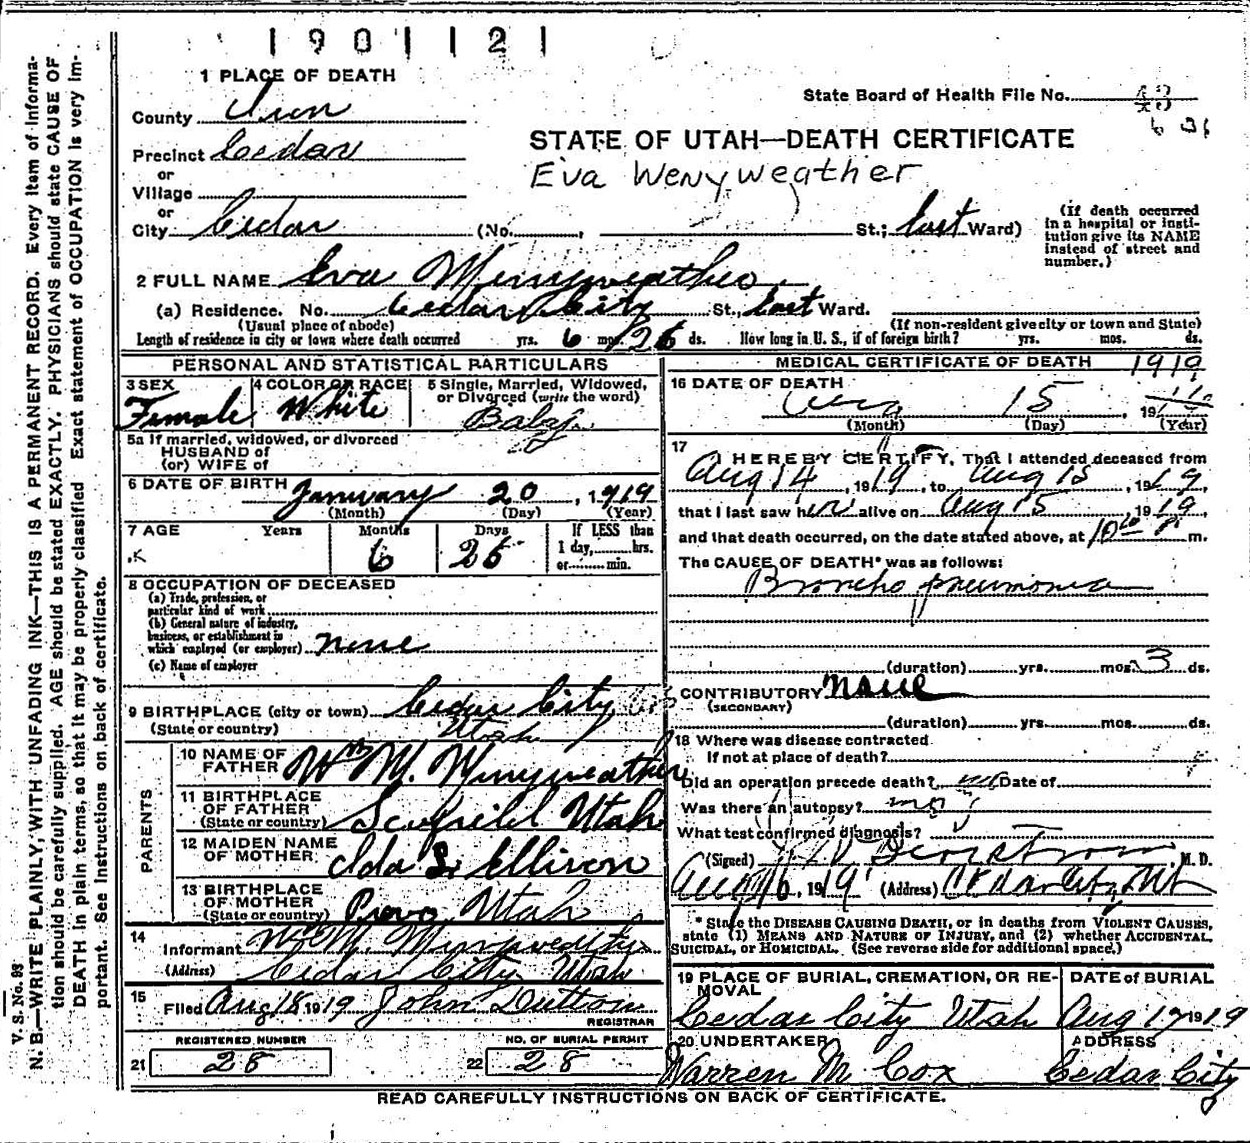 1901121
1 PLACE OF DEATH
County Iron
State Board of Health File No. 43
Precinct Cedar
STATE OF UTAH—DEATH CERTIFICATE
or
Eva Wenyweather
Village
or
City Cedar (No. , St.; East Ward)
(If death occurred in a hospital or insti-
tution give its NAME instead of street and number.)
2 FULL NAME Eva Merryweather
(a) Residence. No. Cedar City St., East Ward.
(Usual place of abode) (If non-resident give city or town and State)
Length of residence in city or town where death occurred yrs. 6 mos. 26 ds. How long in U. S., if of foreign birth? yrs. mos. ds.
PERSONAL AND STATISTICAL PARTICULARS
3 SEX Female
4 COLOR OR RACE White
5 Single, Married, Widowed, or Divorced (write the word) Baby
5a If married, widowed, or divorced
HUSBAND of
(or) WIFE of
6 DATE OF BIRTH January 20, 1919
(Month) (Day) (Year)
7 AGE Years Months Days If LESS than
6 25 1 day, hrs.
or min.
8 OCCUPATION OF DECEASED
(a) Trade, profession, or
particular kind of work
(b) General nature of industry,
business, or establishment in
which employed (or employer) none
(c) Name of employer
9 BIRTHPLACE (city or town) Cedar City
(State or country) Utah
PARENTS
10 NAME OF FATHER Wm M. Merryweather
11 BIRTHPLACE OF FATHER (State or country) Scofield Utah
12 MAIDEN NAME OF MOTHER Ida S. Ellison
13 BIRTHPLACE OF MOTHER (State or country) Provo Utah
14
Informant Wm M. Merryweather
(Address) Cedar City Utah
15
Filed Aug 18 1919 John Dutton
REGISTRAR
REGISTERED NUMBER NO. OF BURIAL PERMIT
21 28 22 28
MEDICAL CERTIFICATE OF DEATH 1919
16 DATE OF DEATH
Aug 15 19
(Month) (Day) (Year)
17
I HEREBY CERTIFY, That I attended deceased from
Aug 14, 1919, to Aug 15, 1919,
that I last saw her alive on Aug 15, 1919
and that death occurred, on the date stated above, at 10 P m.
The CAUSE OF DEATH* was as follows:
Broncho pneumonia
(duration) yrs. mos. 3 ds.
CONTRIBUTORY None
(SECONDARY)
(duration) yrs. mos. ds.
18 Where was disease contracted
If not at place of death?
Did an operation precede death? no Date of
Was there an autopsy? no
What test confirmed diagnosis?
(Signed) , M. D.
Aug 16, 1919 (Address) Cedar City, Ut
* State the DISEASE CAUSING DEATH, or in deaths from VIOLENT CAUSES,
state (1) MEANS AND NATURE OF INJURY, and (2) whether ACCIDENTAL,
SUICIDAL, or HOMICIDAL. (See reverse side for additional space.)
19 PLACE OF BURIAL, CREMATION, OR RE-
MOVAL
Cedar City Utah
DATE of BURIAL
Aug 17 1919
20 UNDERTAKER
Warren M Cox
ADDRESS
Cedar City
READ CAREFULLY INSTRUCTIONS ON BACK OF CERTIFICATE.
V. S. No. 93
N. B.—WRITE PLAINLY, WITH UNFADING INK—THIS IS A PERMANENT RECORD. Every item of informa-
tion should be carefully supplied. AGE should be stated EXACTLY. PHYSICIANS should state CAUSE OF
DEATH in plain terms, so that it may be properly classified. Exact statement of OCCUPATION is very im-
portant. See instructions on back of certificate.